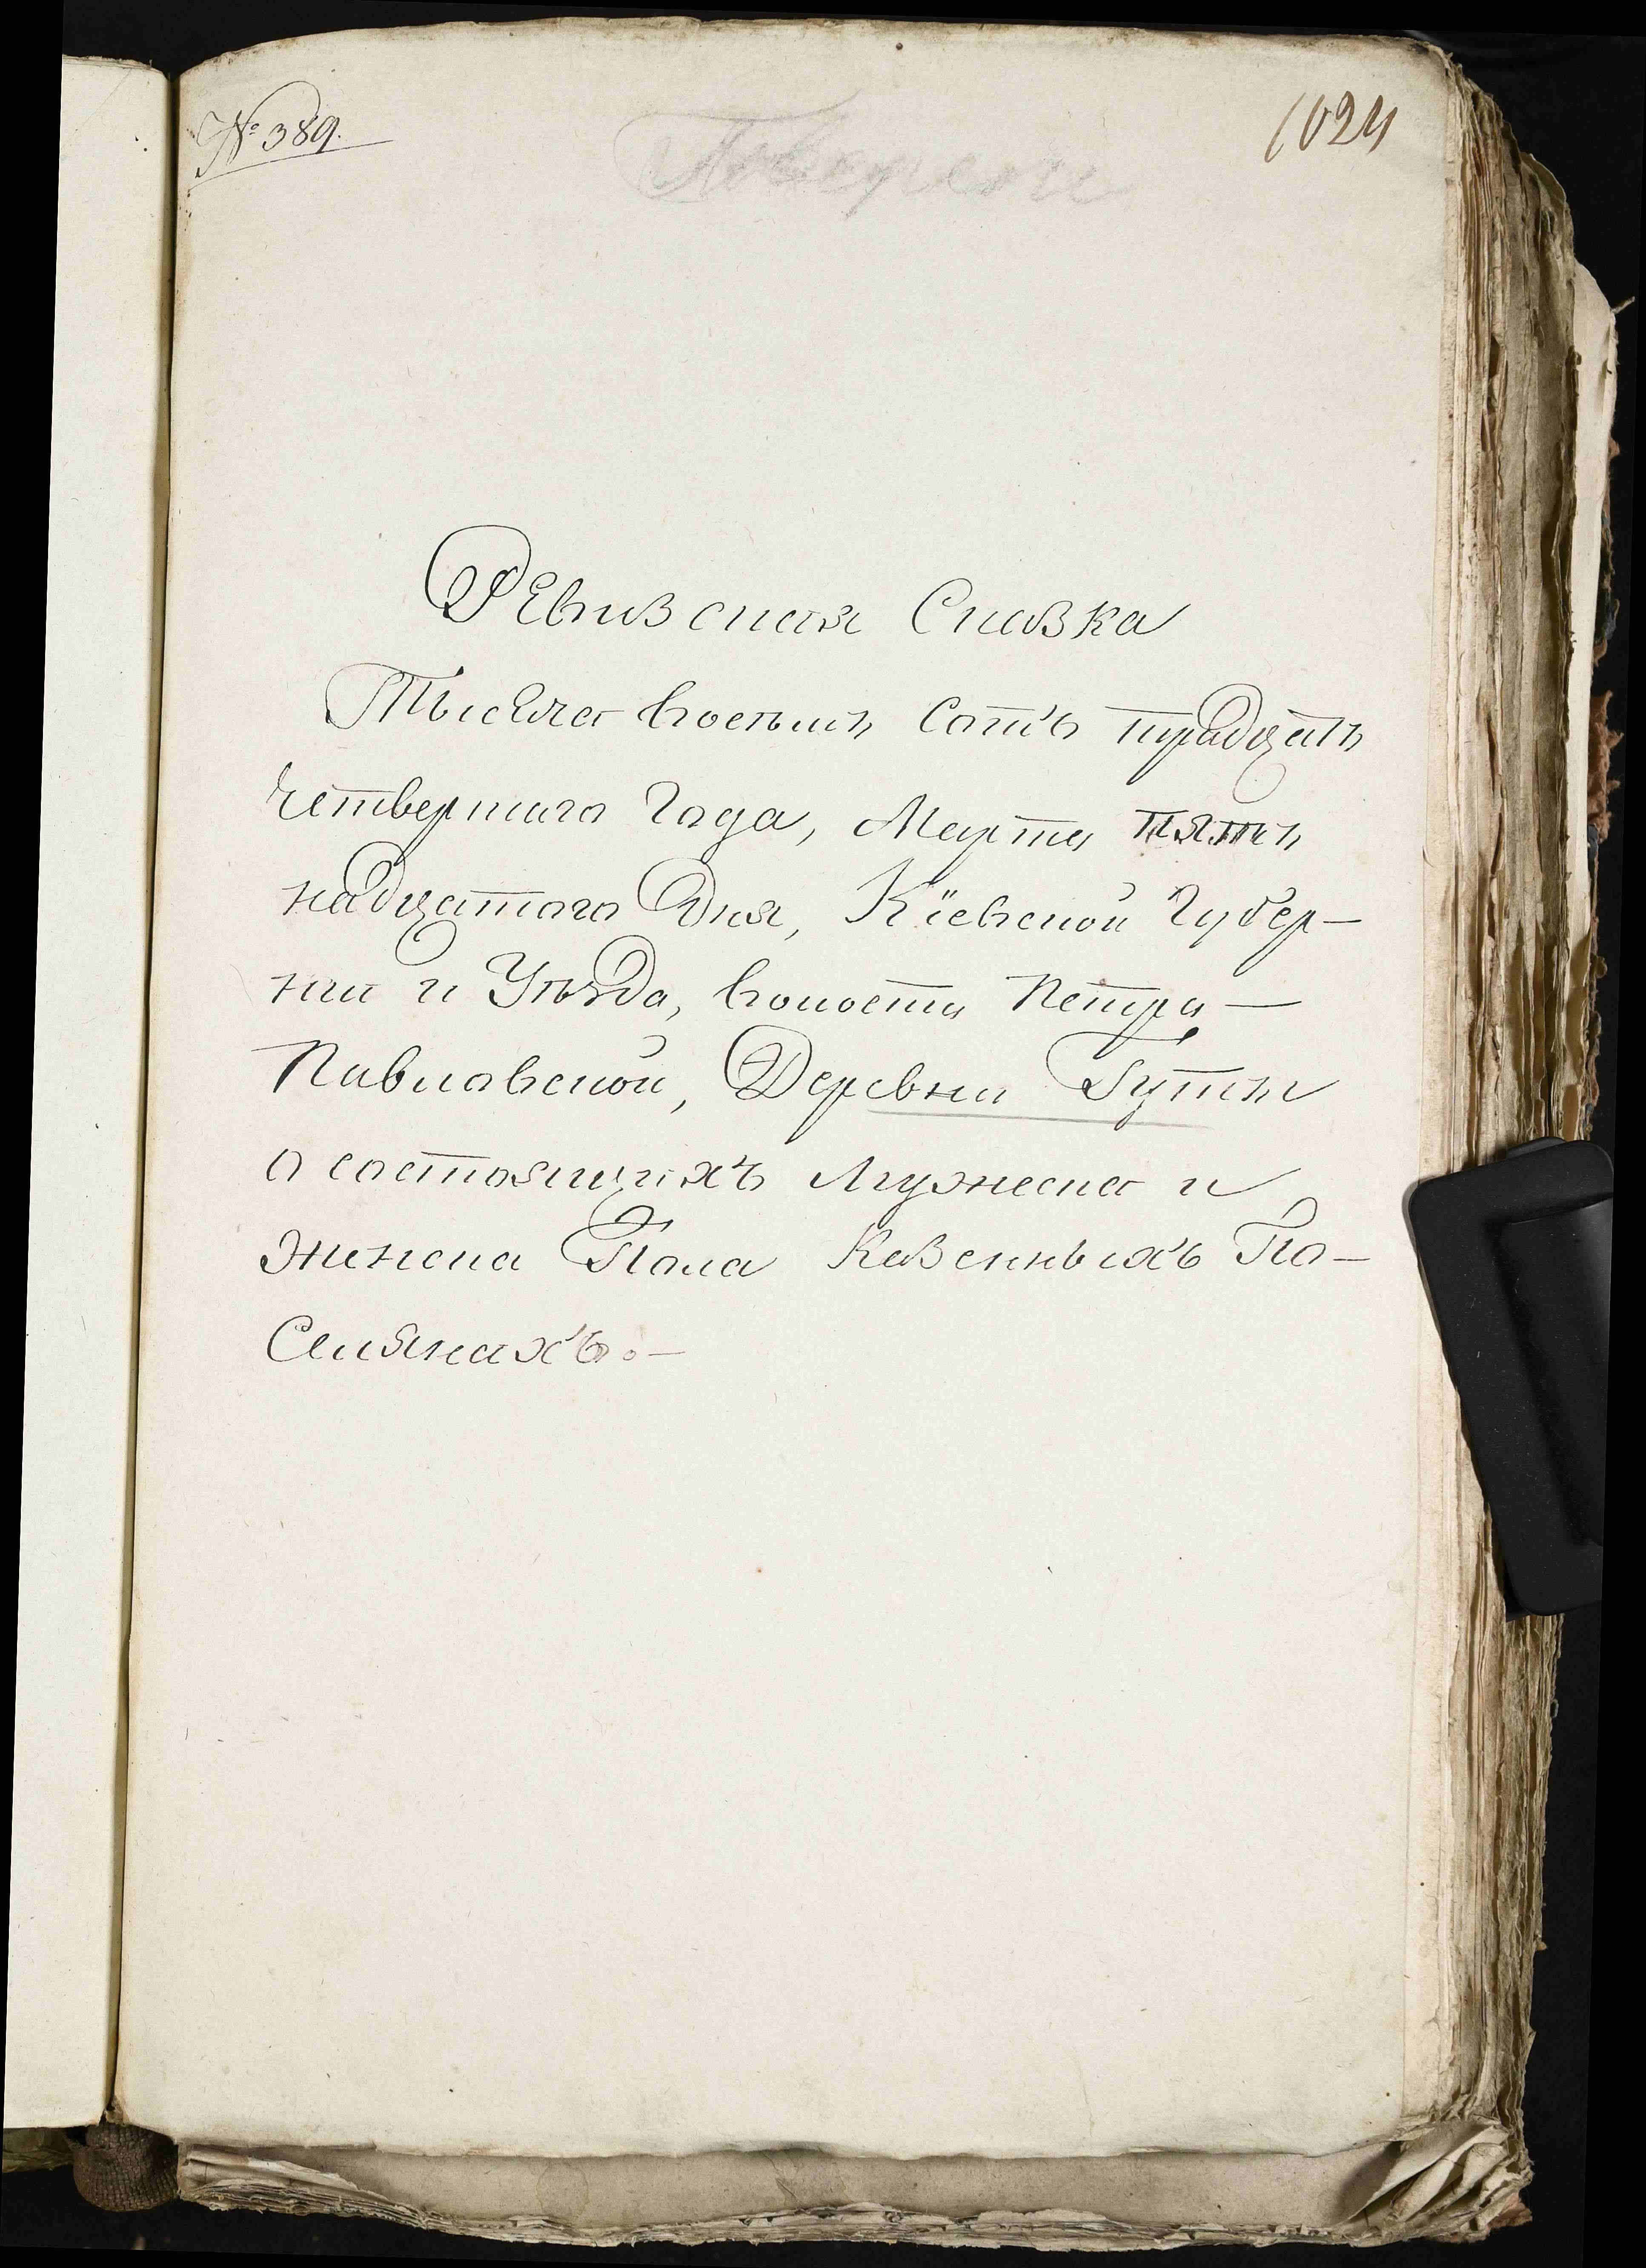 № 389.
1024
Ревизская Сказка
Тысяча восемь сотъ тридцать
четвертаго года, Марта пять
надцатого Дня, Кіевской Губер-
нии и Уѣзда, волости Петра-
Павловской, Деревни Гуты
о состоящихъ мужеска и
женска Пола Казенныхъ По-
Селянахъ.-